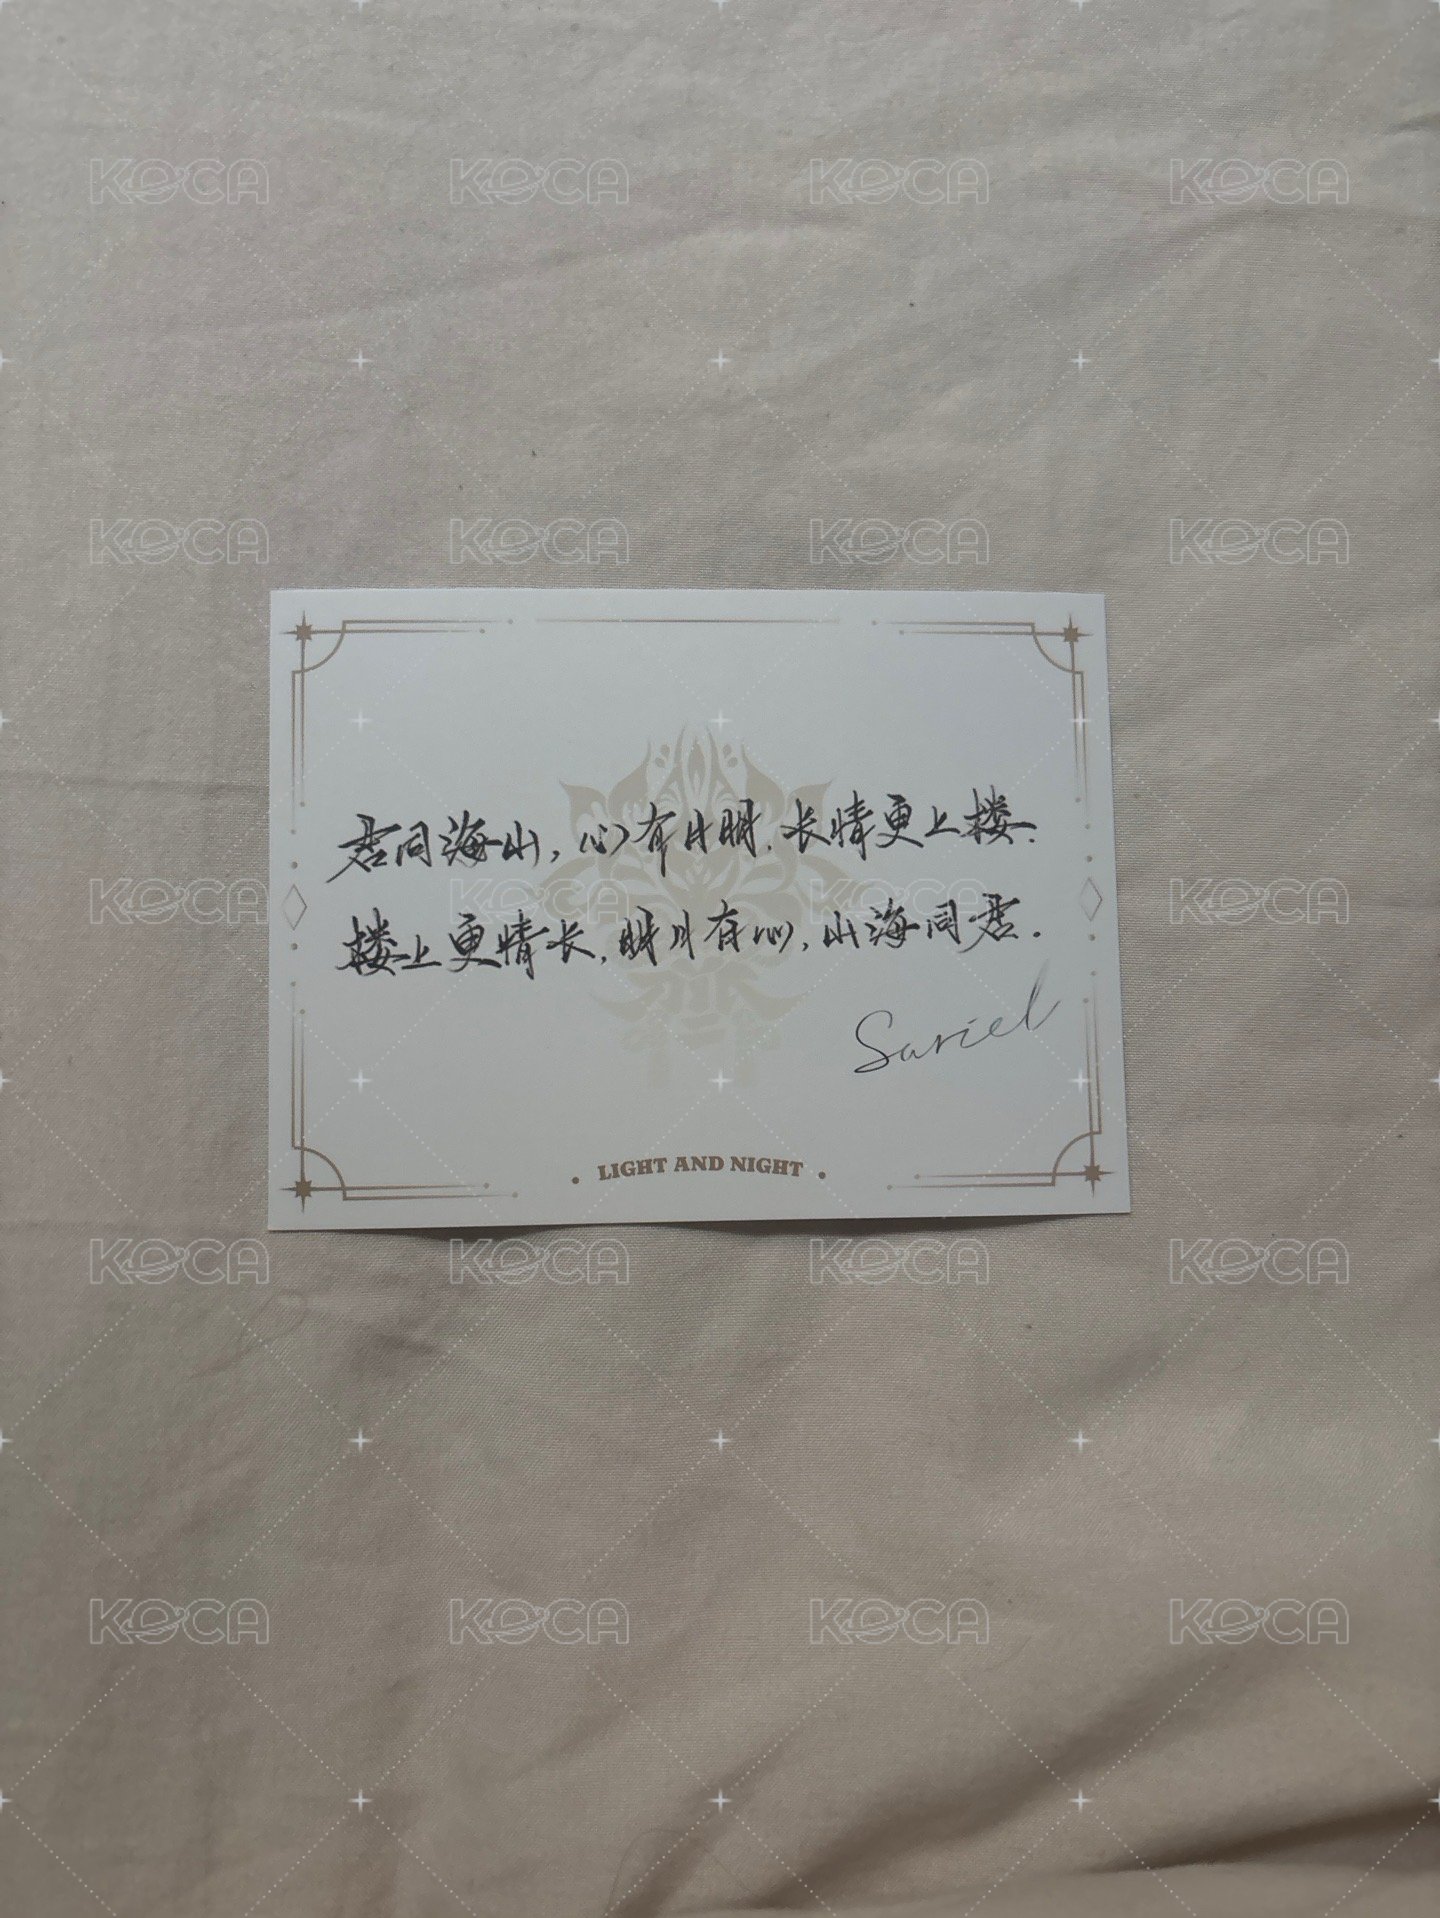 KOCA KOCA KOCA KOCA
KOCA KOCA KOCA KOCA
君同海山,心有月明,长情更上楼.
楼上更情长,明月有心,山海同君.
KOCA KOCA KOCA KOCA
Sariel
LIGHT AND NIGHT
KOCA KOCA KOCA KOCA
KOCA KOCA KOCA KOCA